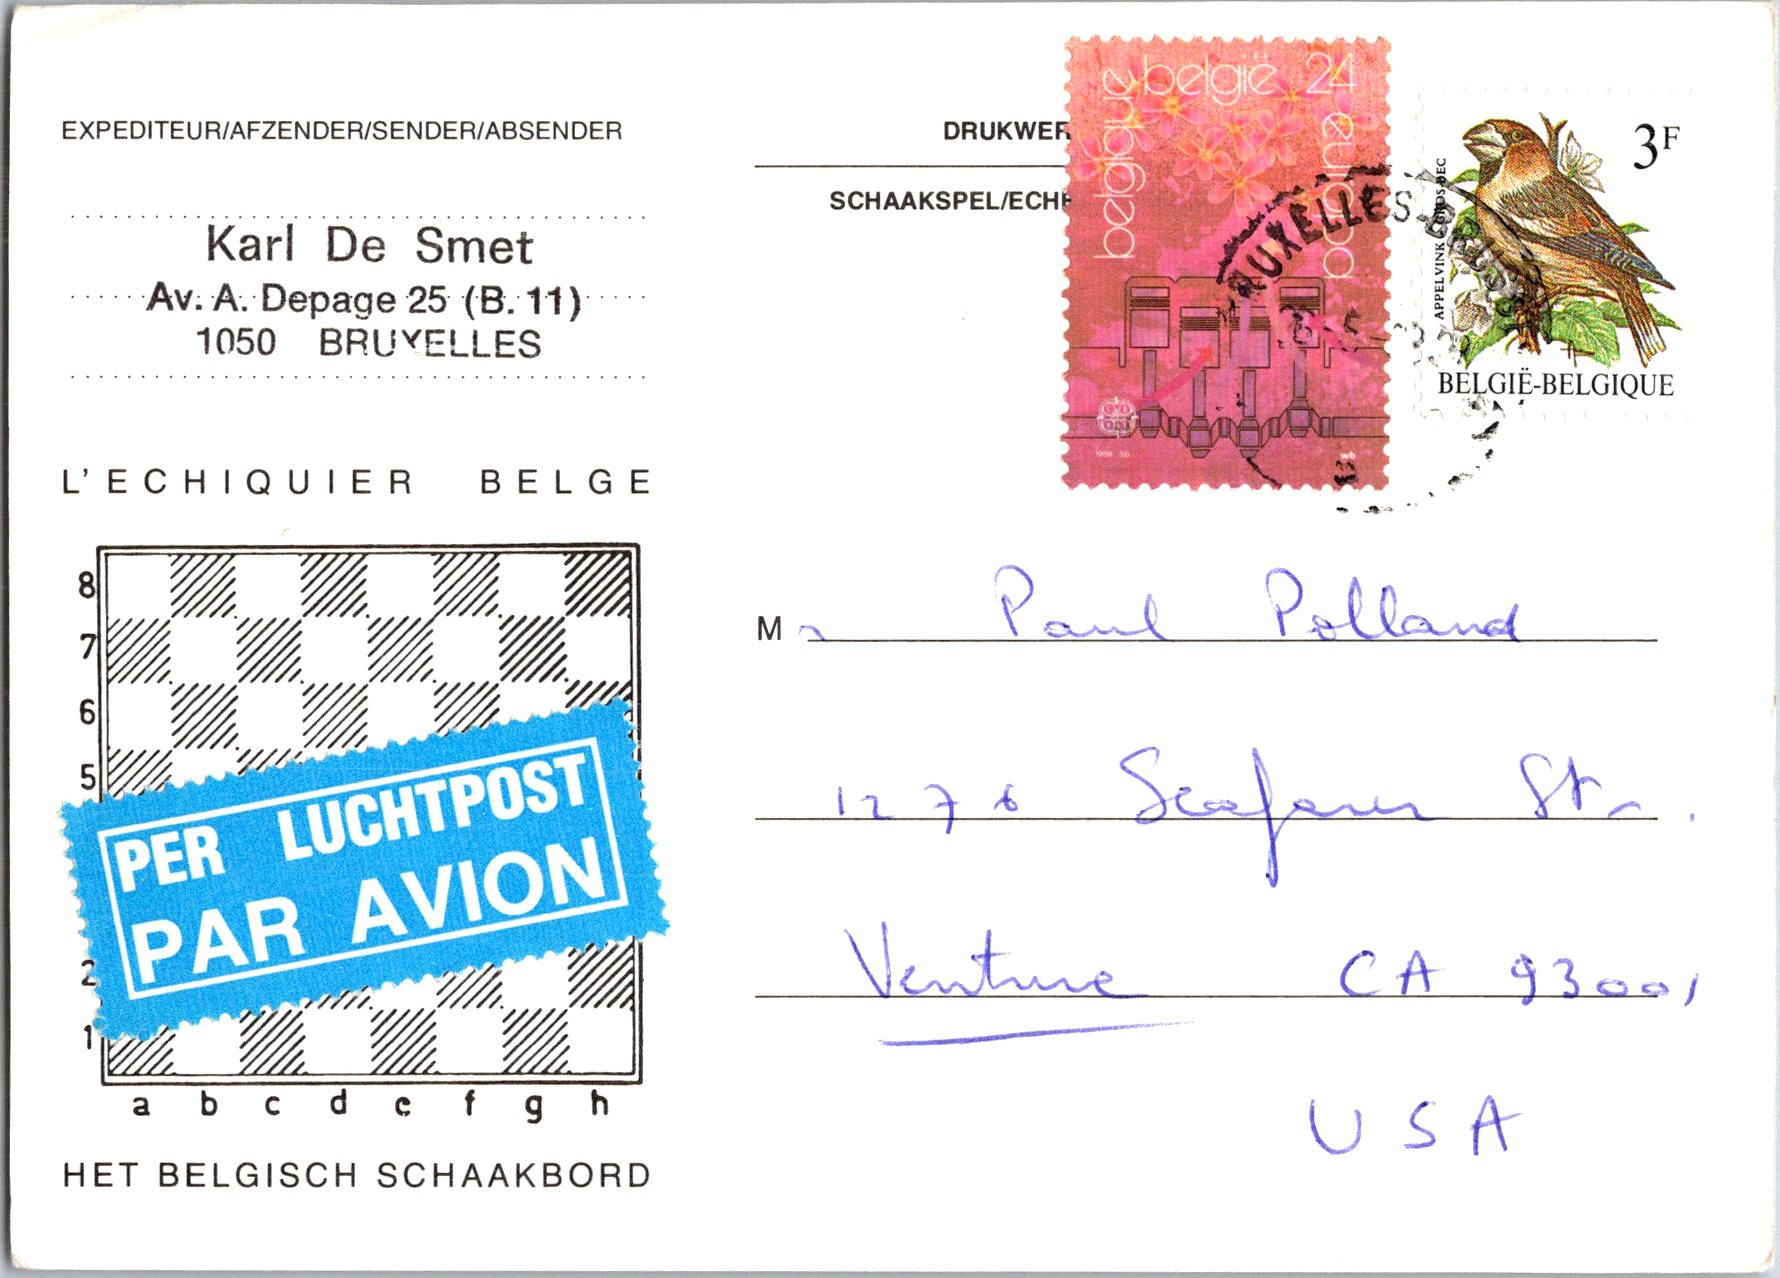 EXPEDITEUR/AFZENDER/SENDER/ABSENDER
Karl De Smet
Av. A. Depage 25 (B. 11)
1050 BRUXELLES
L'ECHIQUIER BELGE
8
7
6
5
2
1
a b c d e f g h
PER LUCHTPOST
PAR AVION
HET BELGISCH SCHAAKBORD
DRUKWER
SCHAAKSPEL/ECH
belgique belgië 24
postzegel
3F
APPELVINK GROS-BEC
BELGIË-BELGIQUE
UXELLES
Mr Paul Polland
1276 Seafarer Str.
Venture CA 93001
USA